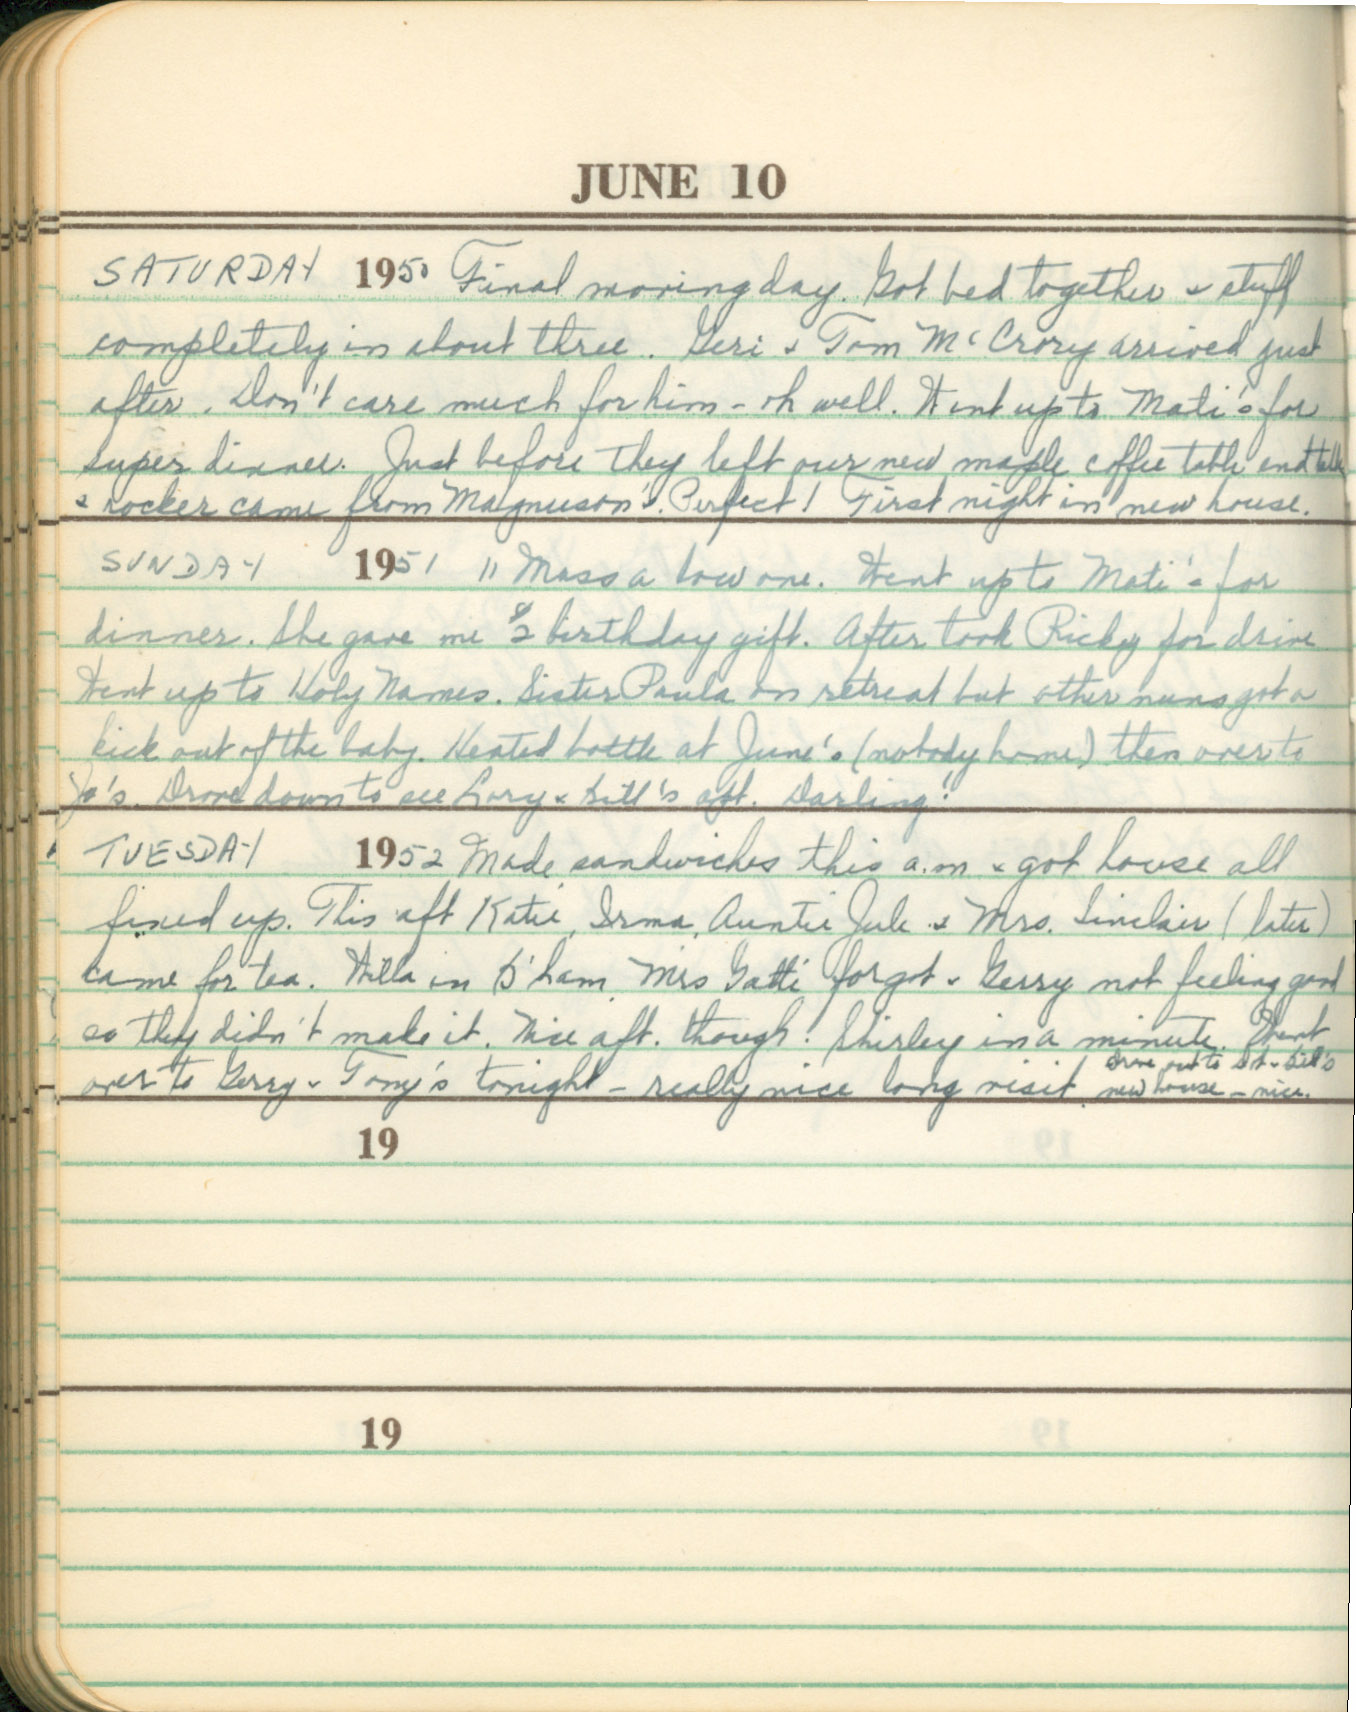 JUNE 10
SATURDAY 1950 Final moving day. Got bed together & stuff
completely in about three. Geri & Tom McCrory arrived just
after. Don't care much for him - oh well. Went up to Mati's for
super dinner. Just before they left our new maple coffee table end table
& rocker came from Magnuson's. Perfect! First night in new house.
SUNDAY 1951 11 Mass a low one. Went up to Mati's for
dinner. She gave me $2 birthday gift. After took Ricky for drive
Went up to Holy Names. Sister Paula on retreat but other nuns got a
kick out of the baby. Heated bottle at June's (nobody home) then over to
Jo's. Drove down to see Lory & Bill's apt. Darling!
TUESDAY 1952 Made sandwiches this a.m & got house all
fixed up. This aft Katie, Irma, Auntie Jule & Mrs. Sinclair (later)
came for tea. Willa in B'ham Mrs Gatti forgot & Gerry not feeling good
so they didn't make it. Nice aft. though. Shirley in a minute. Went
over to Gerry & Tony's tonight - really nice long visit. Drove out to & Bill's
new house - nice.
19
19